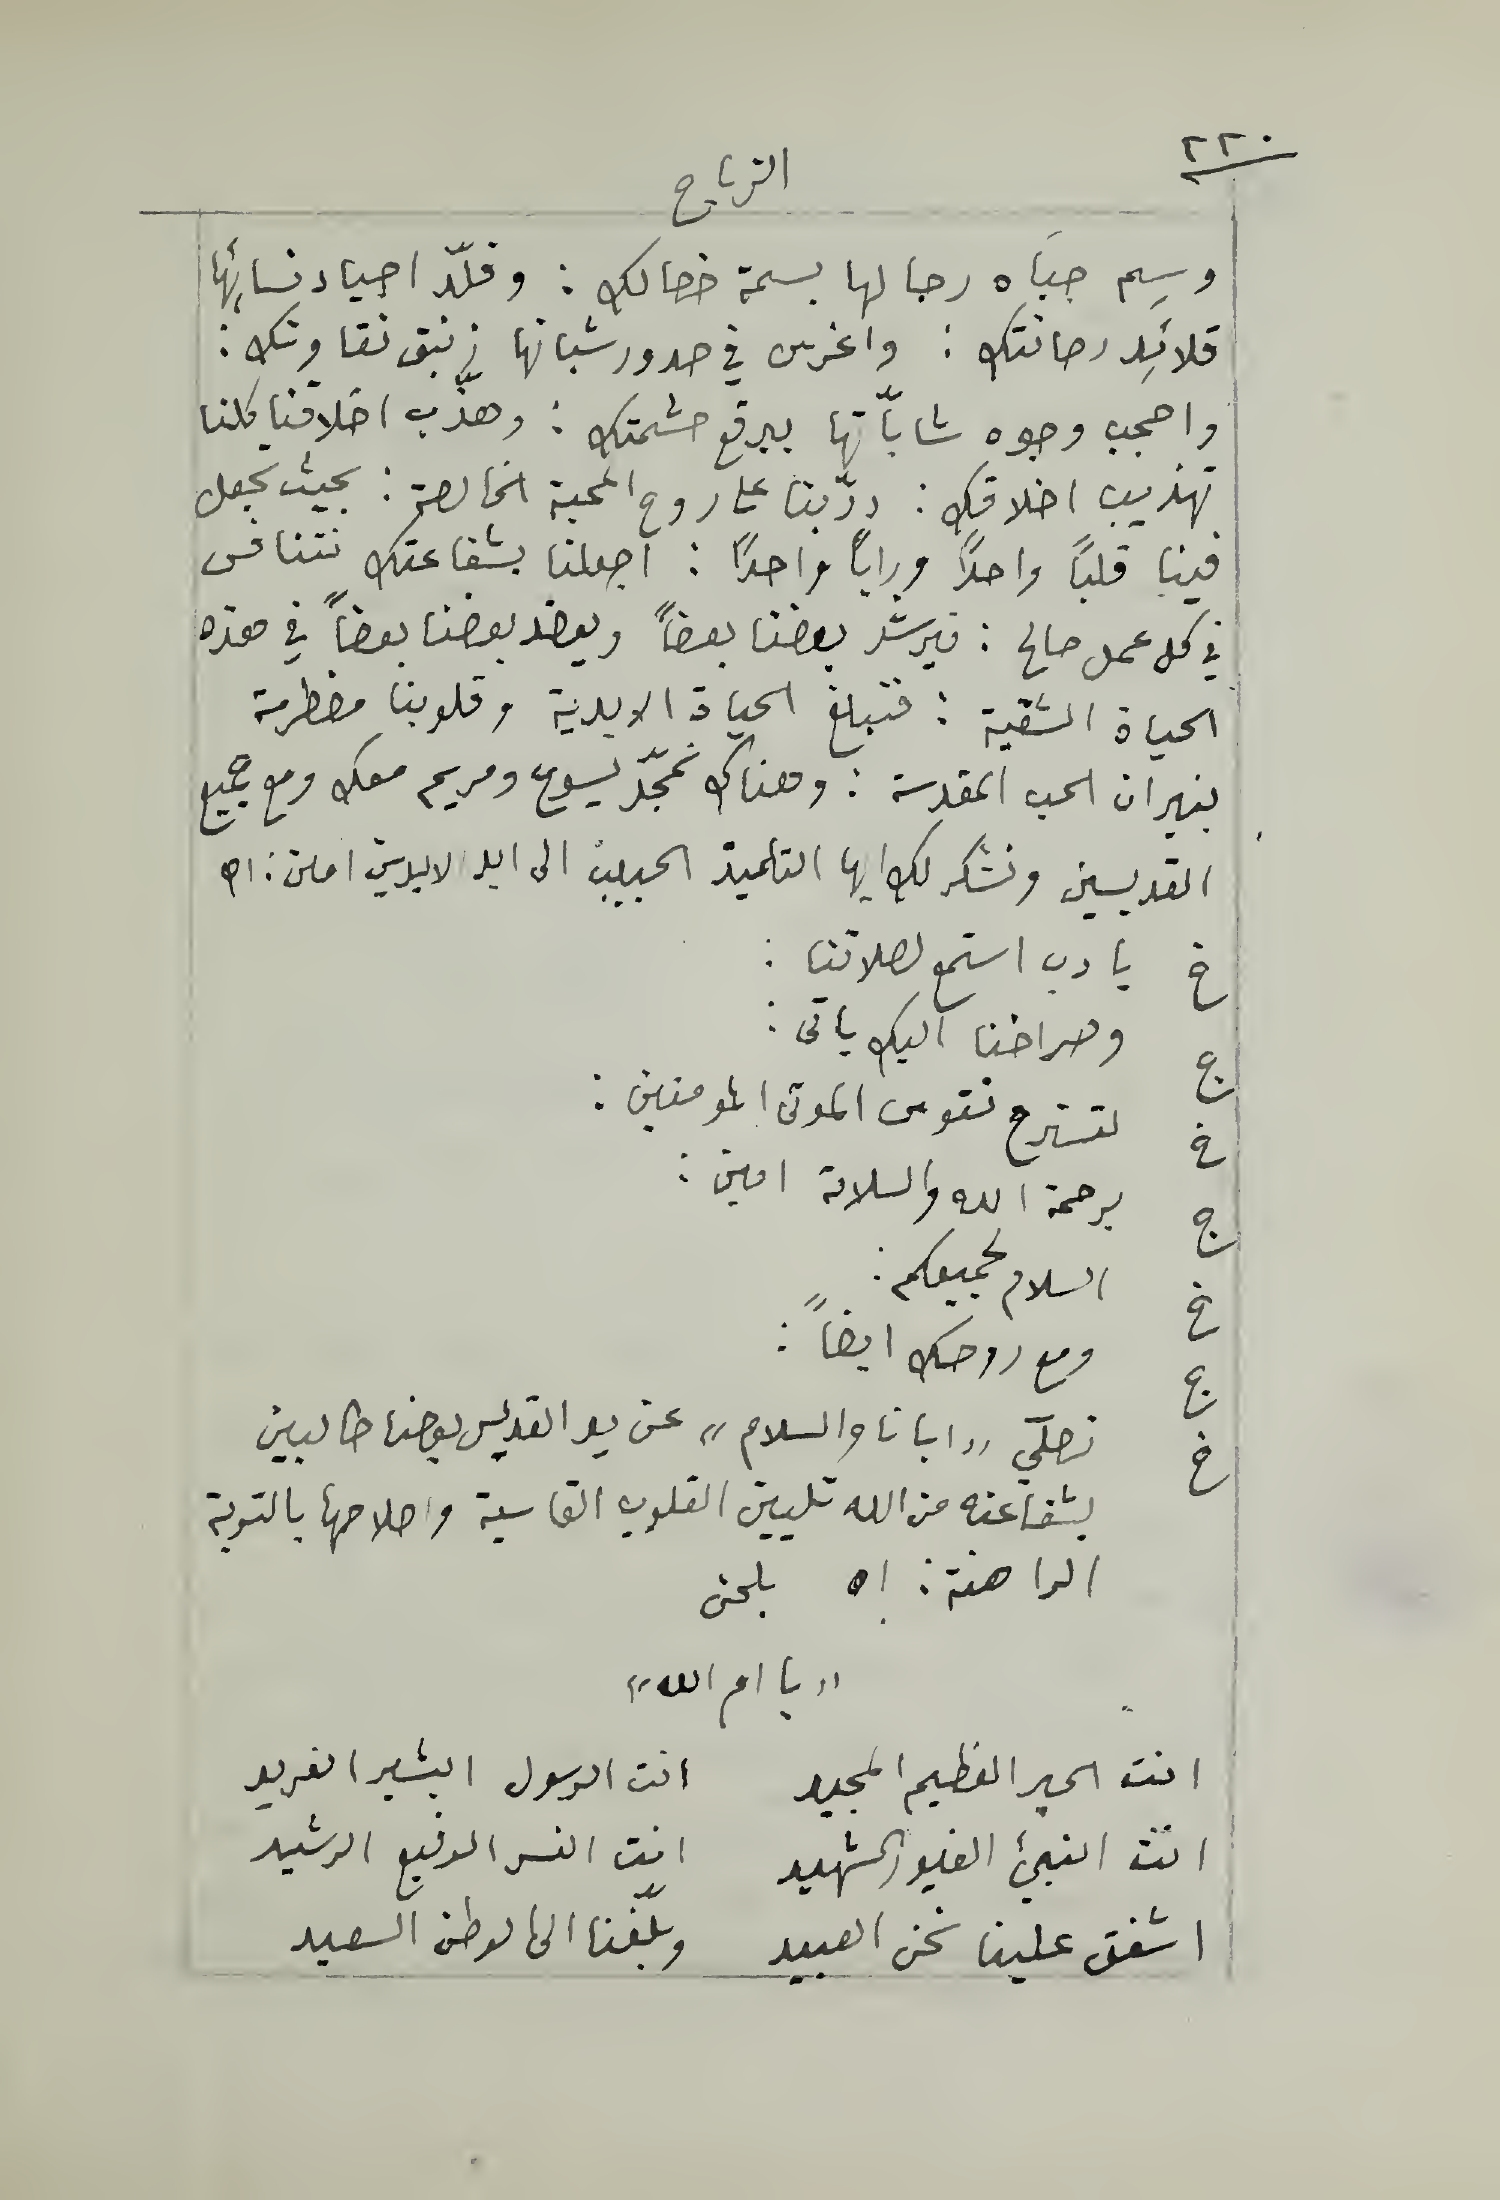 ٢٢٠
الزياح
وسِم جباَه رجالها بسمة خصالك : وقلّد اجياد نسائِها
قلائِد رصانتك : واغرس في صدور شبانها زنبق نقاوتك :
واحجب وجوه شابّاتها ببرقع حشمتك : وهذّب اخلاقنا كلنا
تهذيب اخلاقك : وربّنا على روح المحبة الخالصة : بحيث نجعل
فينا قلباً واحداً ورأياً واحداً : اجعلنا بشفاعتك نتنافس
في كل عمل صالح : فيرشد بعضنا بعضاً ويعضد بعضنا بعضاً في هذه
الحياة الشقية : فنبلغ الحياة الابدية وقلوبنا مضطرمة
بنيران الحب المقدسة : وهناك نمجّد يسوع ومريم معك ومع جميع
القديسين ونشكر لك ايها التلميذ الحبيب الى ابد الابدين امين : اه
خ يا رب استمع لصلاتنا :
ج وصراخنا اليك ياتى :
خ لتسترح نفوس الموتى المومنين :
ج برحمة الله والسلامة امين :
خ السلام لجميعكم :
ج ومع روحك ايضاً :
خ نصلّي "ابانا والسلام" عن يد القديس يوحنا طالبين
بشفاعته من الله تليين القلوب القاسية واصلاحها بالتوبة
الراهنة : اه بلحن
"يا ام الله"
انت الحبر العظيم المجيد انت الرسول البشير الفريد
انت النبئ الغيور الشهيد انت النسر الرفيع الرشيد
اشفق علينا نحن العبيد وبلّغنا الى الوطن السعيد